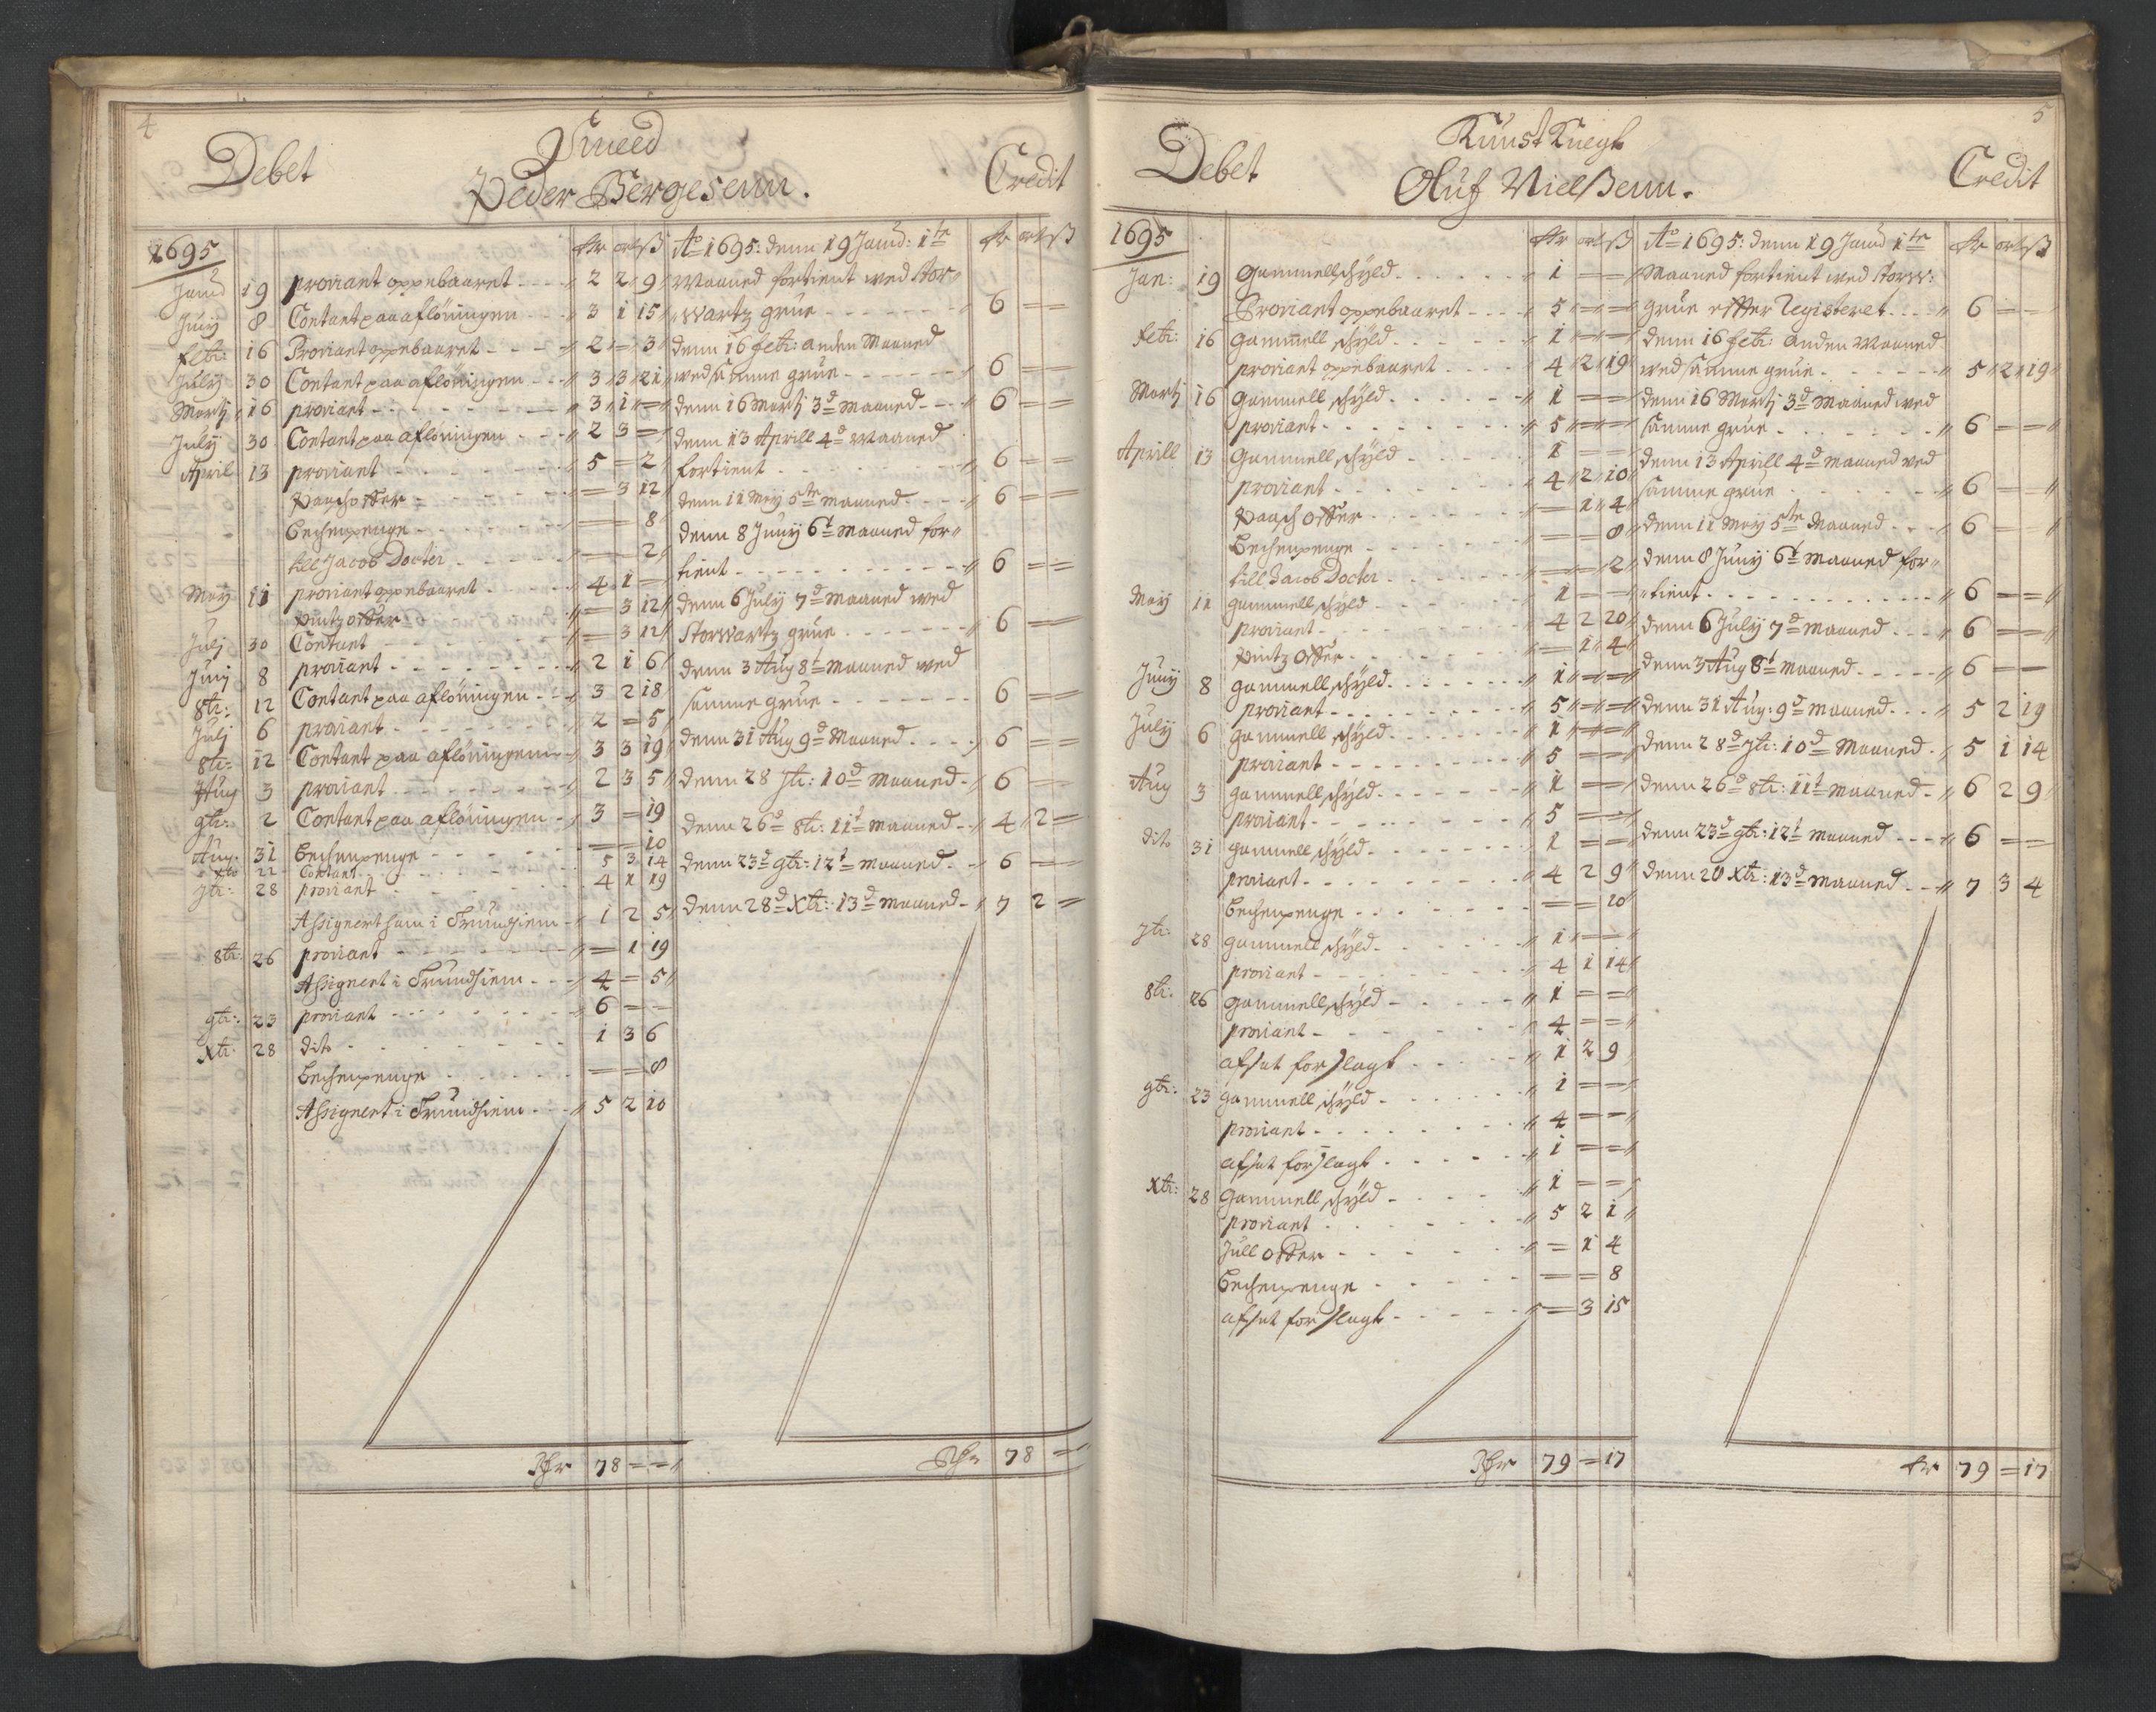 4
Debet
Smeed
Peder Bergesenn.
Credit
1695
dr ort ß
Janu: 19 proviant oppebaaret 2 2 9
Junj 8 Contant paa aflöningen 3 1 15
febr: 16 Proviant oppebaaret 2 = 3
July 30 Contant paa aflöningen 3 3 21
Martj 16 proviant 3 1 =
July 30 Contant paa aflöningen 2 3 =
April 13 proviant 5 = 2
Paasch offer = 3 12
Bechenpenge = = 8
till Jacob Docter = = 2
Maij 11 proviant oppebaaret 4 1 =
Pintz offer = 3 12
Julj 30 Contant = 3 12
Junj 8 proviant 2 1 6
8br: 12 Contant paa aflöningen 3 2 18
Julj 6 proviant 2 = 5
8br: 12 Contant paa aflöningenn 3 3 19
Aug 3 proviant 2 3 5
9br: 2 Contant paa aflöningen 3 = 19
Aug: 31 Bechenpenge = = 10
Xbr 22 Contant 5 3 14
7br: 28 proviant 4 1 19
Assignert ham i Trundhiem 1 2 5
8br: 26 proviant = 1 19
Assignert i Trundhiem 4 = 5
9br: 23 proviant 6 = =
Xbr: 28 dito 1 3 6
Bechenpenge = = 8
Assignert i Trundhiem 5 2 10
Rdr 78 = =
Ao 1695: denn 19 Janu: 1te dr ort ß
Maaned fortient wed Stor¬
wartz grue 6 = =
denn 16 febr: anden Maaned
wed samme grue 6 = =
denn 16 Martj 3d Maaned 6 = =
denn 13 Aprill 4d Maaned
fortient 6 = =
denn 11 Maij 5te Maaned 6 = =
denn 8 Junij 6t Maaned for¬
tient 6 = =
denn 6 Julij 7d Maaned wed
Storwartz grue 6 = =
denn 3 Aug 8t Maaned wed
samme grue 6 = =
denn 31 Aug 9d Maaned 6 = =
denn 28 7br: 10d Maaned 6 = =
denn 26d 8br: 11t Maaned 4 2 =
denn 23d 9br: 12t Maaned 6 = =
denn 28d Xbr: 13d Maaned 7 2 =
Rdr 78 = =
5
Debet
Kunst Knegt
Oluf Nielßenn.
Credit
1695
dr ort ß
Jan: 19 Gammell schyld 1 = =
Proviant oppebaaret 5 = =
febr: 16 gammell schyld 1 = =
proviant oppebaaret 4 2 19
Martj 16 Gammell schyld 1 = =
proviant 5 = =
Aprill 13 Gammell schyld 1 = =
proviant 4 2 10
Paasch offer = 1 4
Bechenpenge = = 8
till Jacob Docter = = 2
Maij 11 gammell schyld 1 = =
proviant 4 2 20
Pintz offer = 1 4
Junij 8 gammell schyld 1 = =
proviant 5 = =
July 6 gammell schyld 1 = =
proviant 5 = =
Aug 3 gammell schyld 1 = =
proviant 5 = =
dito 31 gammell schyld 1 = =
proviant 4 2 9
Bechenpenge = = 10
7br: 28 gammell schyld 1 = =
proviant 4 1 14
8br: 26 gammell schyld 1 = =
proviant 4 = =
afsat forslagt 1 2 9
9br: 23 gammell schyld 1 = =
proviant 4 = =
afsat forslagt 1 = =
Xbr: 28 Gammell schyld 1 = =
proviant 5 2 1
Jull offer = 1 4
Bechenpenge = = 8
afsat forslagt = 3 15
Rdr 79 = 17
Ao 1695: denn 19 Janu 1te dr ort ß
Maaned fortient wed Storw:
grue effter Registeret 6 = =
denn 16 febr: anden Maaned
wed samme grue 5 2 19
denn 16 Martj 3d Maaned wed
samme grue 6 = =
denn 13 Aprill 4d Maaned wed
samme grue 6 = =
denn 11 Maij 5te Maaned 6 = =
denn 8 Junij 6t Maaned for¬
tient 6 = =
denn 6 Julij 7d Maaned 6 = =
denn 3 Aug 8t Maaned 6 = =
denn 31 Aug: 9d Maaned 5 2 19
denn 28d 7br: 10d Maaned 5 1 14
denn 26d 8br: 11t Maaned 6 2 9
denn 23d 9br: 12t Maaned 6 = =
denn 28 Xbr: 13d Maaned 7 3 4
dr 79 = 17